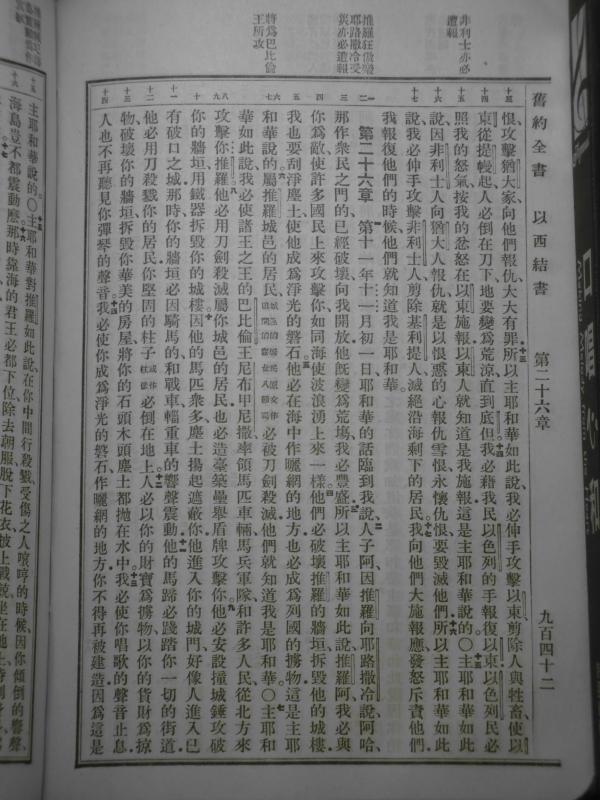 舊約全書 以西結書 第二十六章 九百四十二
恨攻擊猶大家向他們報仇大大有罪所以主耶和華如此說我必伸手攻擊以東剪除人與牲畜使以
東從提幔起人必倒在刀下地要變爲荒涼直到底但我必藉我民以色列的手報復以東以色列民必
照我的怒氣按我的忿怒在以東施報以東人就知道是我施報這是主耶和華說的〇主耶和華如此
說因非利士人向猶大人報仇就是以恨惡的心報仇雪恨永懷仇恨要毀滅他們所以主耶和華如此
說我必伸手攻擊非利士人剪除基利提人滅絕沿海剩下的居民我向他們大施報應發怒斥責他們
我報復他們的時候他們就知道我是耶和華
第二十六章 第十一年十一月初一日耶和華的話臨到我說人子阿因推羅向耶路撒冷說阿哈
那作衆民之門的已經破壞向我開放他旣變爲荒場我必豐盛所以主耶和華如此說推羅阿我必與
你爲敵使許多國民上來攻擊你如同海使波浪湧上來一樣他們必破壞推羅的牆垣拆毀他的城樓
我也要刮淨塵土使他成爲淨光的磐石他必在海中作曬網的地方也必成爲列國的擄物這是主耶
和華說的屬推羅城邑的居民必被刀劍殺滅他們就知道我是耶和華〇主耶和
華如此說我必使諸王之王的巴比倫王尼布甲尼撒率領馬匹車輛馬兵軍隊和許多人民從北方來
攻擊你推羅他必用刀劍殺滅屬你城邑的居民也必造臺築壘舉盾牌攻擊你他必安設撞城錘攻破
你的牆垣用鐵器拆毀你的城樓因他的馬匹衆多塵土揚起遮蔽你他進入你的城門好像人進入已
有破口之城那時你的牆垣必因騎馬的和戰車輜重車的響聲震動他的馬蹄必踐踏你一切的街道
他必用刀殺戮你的居民你堅固的柱子或作柱像必倒在地上人必以你的財寶爲擄物以你的貨財爲掠
物破壞你的牆垣拆毀你華美的房屋將你的石頭木頭塵土都拋在水中我必使你唱歌的聲音止息
人也不再聽見你彈琴的聲音我必使你成爲淨光的磐石作曬網的地方你不得再被建造因爲這是
主耶和華說的〇主耶和華對推羅如此說在你中間行殺戮受傷之人唉哼的時候因你傾倒的響聲
海島豈不都震動麽那時靠海的君王必都下位除去朝服脫下花衣披上戰兢坐在地上
非利士亦必遭報
推羅狂傲譏耶路撒冷受災亦必遭報
將爲巴比倫王所攻
口唱心和